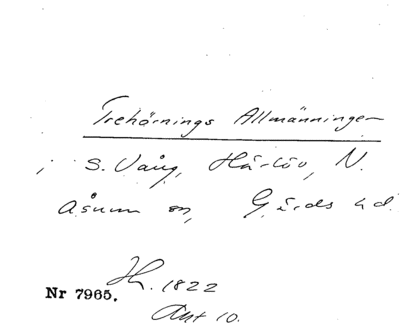 Trehörnings Allmänningen
i S. Vång, Härlöv, N.
Åsum sn, Gärds hd.
Nr 7965.
H. 1822
Akt 10.